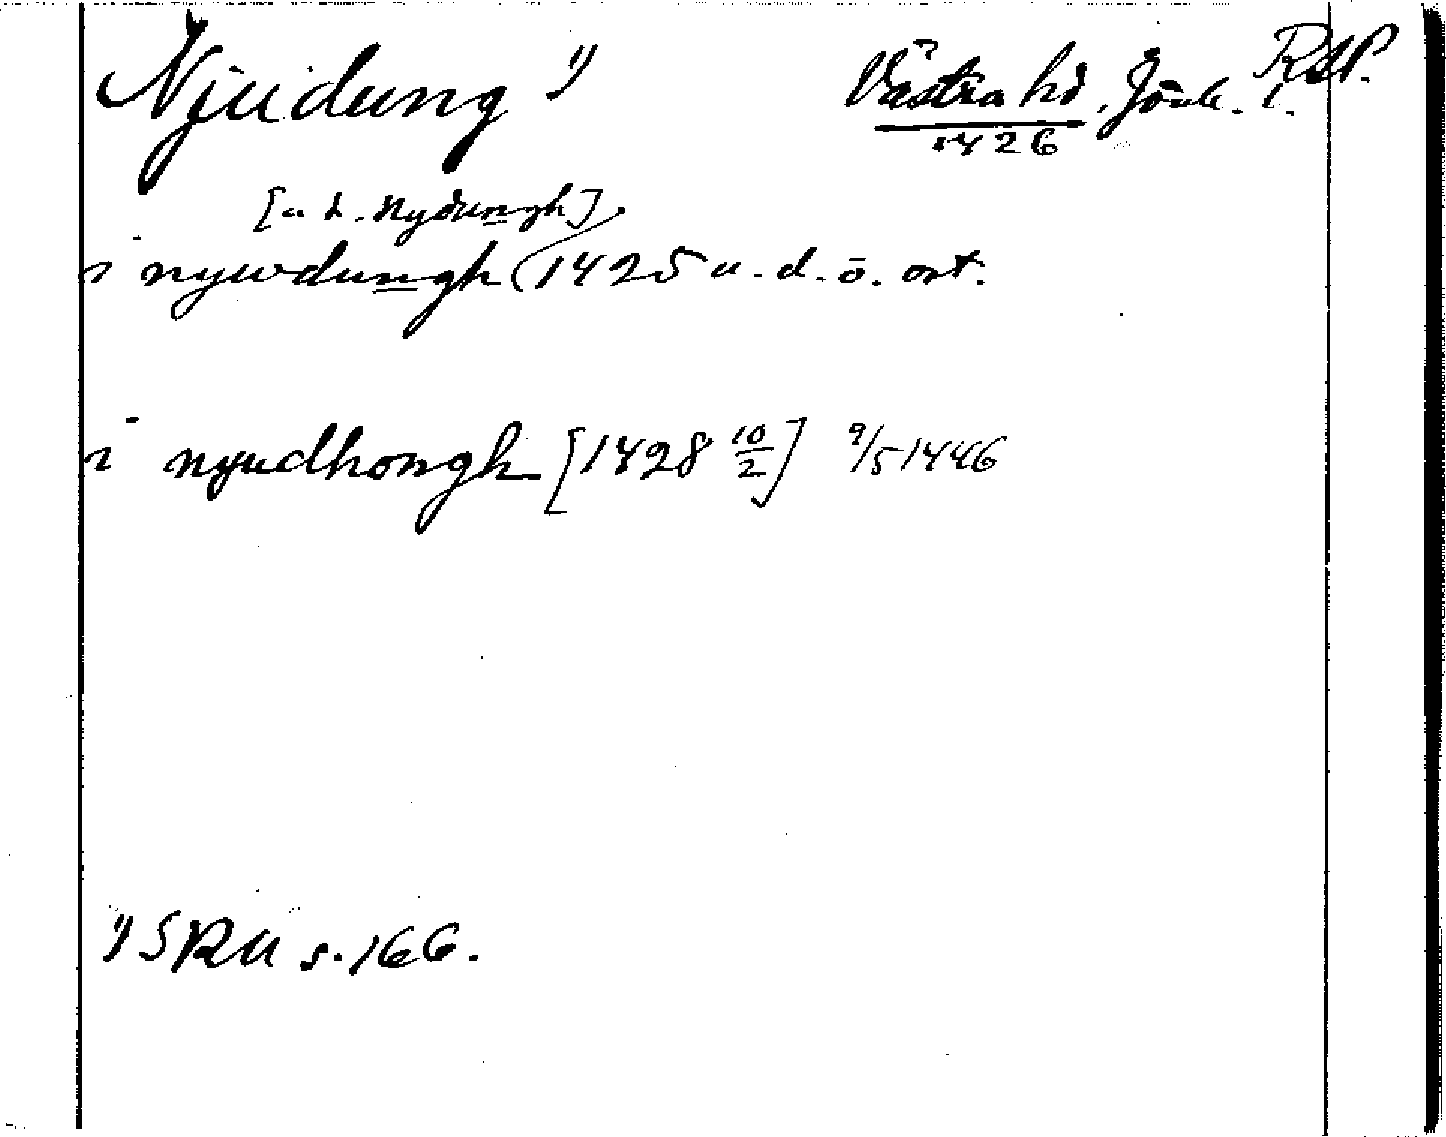 Njudung 1) Västra hd, Jönk. l. RAP.
1426
[a h. Nydungh]
i nywdungh (1425 u. d. o. ort.
i nyudhongh [1428 10/2] 9/5 1446
1) SRU s. 166.